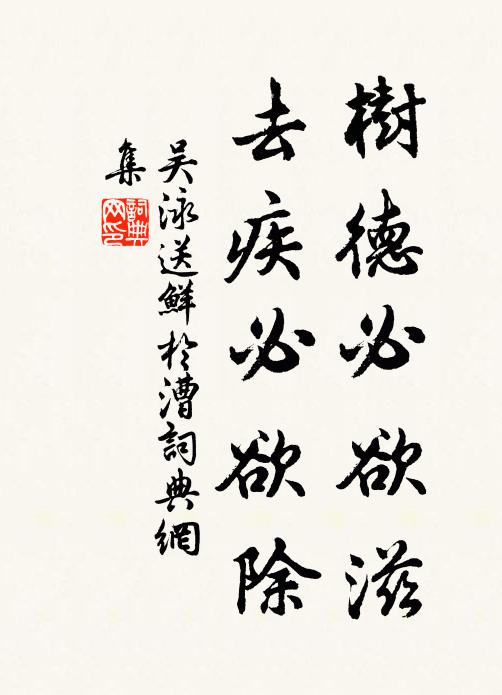 樹德必欲滋
去疾必欲除
吴泳送鮮於漕詞典網
集
詞典网印